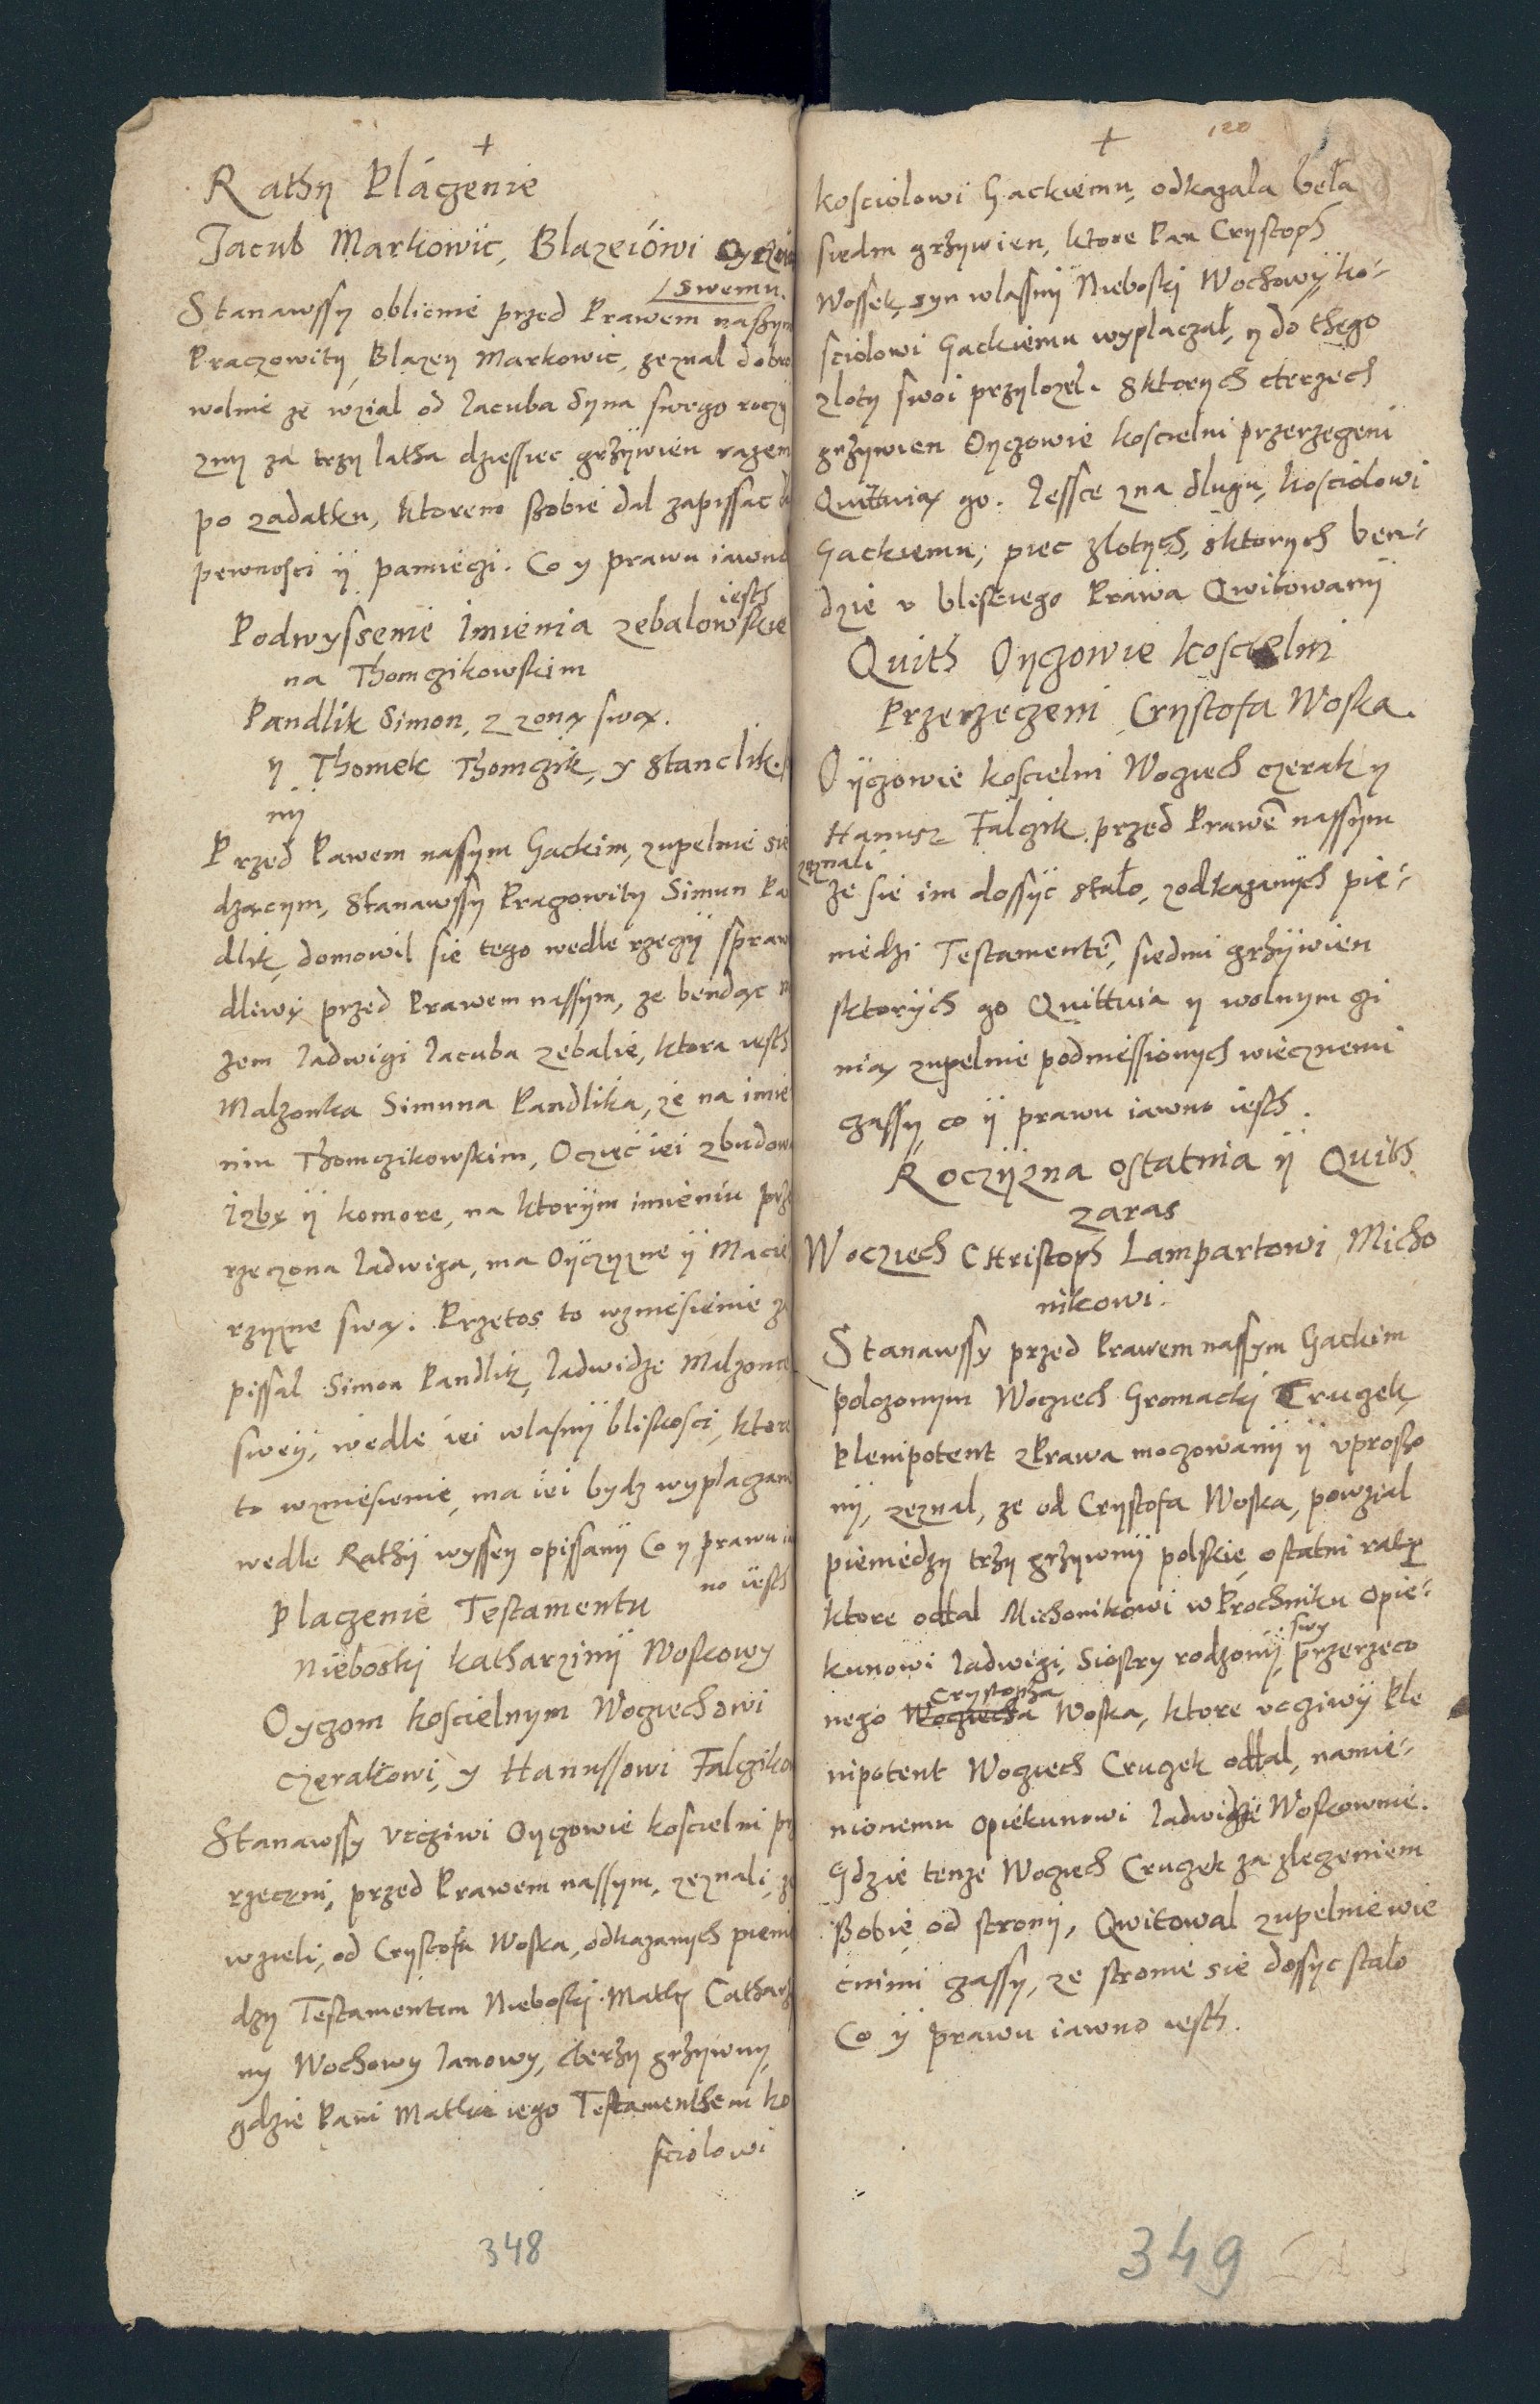 +
Rathy Placzenie
Jacub Markowic, Blazeiowi Oyczu
swemu.
Stanawssy oblicnie przed Prawem naszym
Praczowity Blazey Markowic, zeznal dobro
wolnie ze wzial od Jacuba Syna swego roczy
zny za trzy latha dziessiec grzywien razem
po zadatku, ktorem sobie dal zapissac
pewnosci y pamieczi. Co y prawu iawno
iesth
Podwyssenie Imienia Zebalowskie
na Thomczikowskim
Pandlik Simon, z zoną swą.
y Thomek Thomczik, y Stanclik
ny
Przed Pawem nassym Gackim, zupelnie sie
dzącym, Stanawssy Pragowity Simun Pa
dlik, domowil sie tego wedle rzeczy spraw
dliwy przed Prawem nassym, ze bendąc
zem Jadwigi Jacuba Zebalie, ktora iesth
Malzonka Simuna Pandlika, ze na imie
niu Thomczikowskim, Oczięć iei zbudow
Izbę y komore, na ktorym imieniu prze
rzeczona Jadwiga, ma Oyczyzne y Macie
rzyzne swą. Przetos to wzniesienie za
pissal Simon Pandlik, Jadwidze Malzonce
swey, wedle iei wlasny bliskosci, ktore
to wzniesienie, ma iei bydz wyplaczane
wedle Rathy wyssey opissany Co y prawu ia
no iesth
Placzenie Testamentu
Nieboski Katharziny Woskowy
Oyczom koscielnym Wogiechowi
Czerakowi, y Hanussowi Falcziko
Stanawssy uczciwi Oyczowie koscielni prze
rzeczni, przed Prawem nassym, zeznali, ze
wzieli, od Crystofa Woska, odkazanych pienie
dzy Testamentem Nieboski Matky Catharzi
ny Wochowy Janowy, cterzy grzywny,
gdzie Pani Matka iego Testamenthem ko
sciolowi
348
+
120
kosciolowi Gackiemu, odkazala bela
siedm grzywien, ktore Pan Crystoph
Wossek, syn wlassny Nieboski Wochowy ko-
sciolowi Gackiemu wyplaczal, y do thego
zloty swoi przylozel. sktorych cterzech
grzywien Oyczowie koscielni przerzeczeni
Quittuią go. Jessce zna dlugu, kosciolowi
Gackiemu, piec zlotych, sktorych ben-
dzie u bliskiego Prawa Qwitowany
Quith Oyczowie koscielni
Przerzeczeni Crystofa Woska.
Oyczowie koscielni Wogiech Czerak y
Hanusz Falczik przed Prawē nassym
zeznali
ze sie im dossyc stało, zodkazanych pie-
niedzi Testamentē, siedmi grzywien
sktorych go Quittuia y wolnym czi
nią zupelnie podniessionych wiecznemi
czassy, co y prawu iawno iesth.
Roczyzna ostatnia y Quith
zaras
Wocziech Christoph Lampartowi Micho
nikowi.
Stanawssy przed Prawem nassym Gackim
polczonym Wogiech Gromacki Crugek,
Plenipotent zPrawa moczowany y uprosso
ny, zeznal, ze od Crystofa Woska, powzial
pieniedzy trzy grzywny polskie ostatni ratę
ktore oddal Michonikowi w Prochniku opie-
kunowi Jadwigi, Siostry rodzony, swy przerzeco
nego Wogiecha Crystopha Woska, ktore uczciwy Ple
nipotent Wogiech Crugek oddal, namie-
nionemu opiekunowi Jadwidze Woskownie.
Gdzie tenze Wogiech Crugek za zleczeniem
sobie od strony, Qwitowal zupelnie wie
cnimi czassy, ze stronie sie dossyc stało
Co y prawu iawno iesth.
349